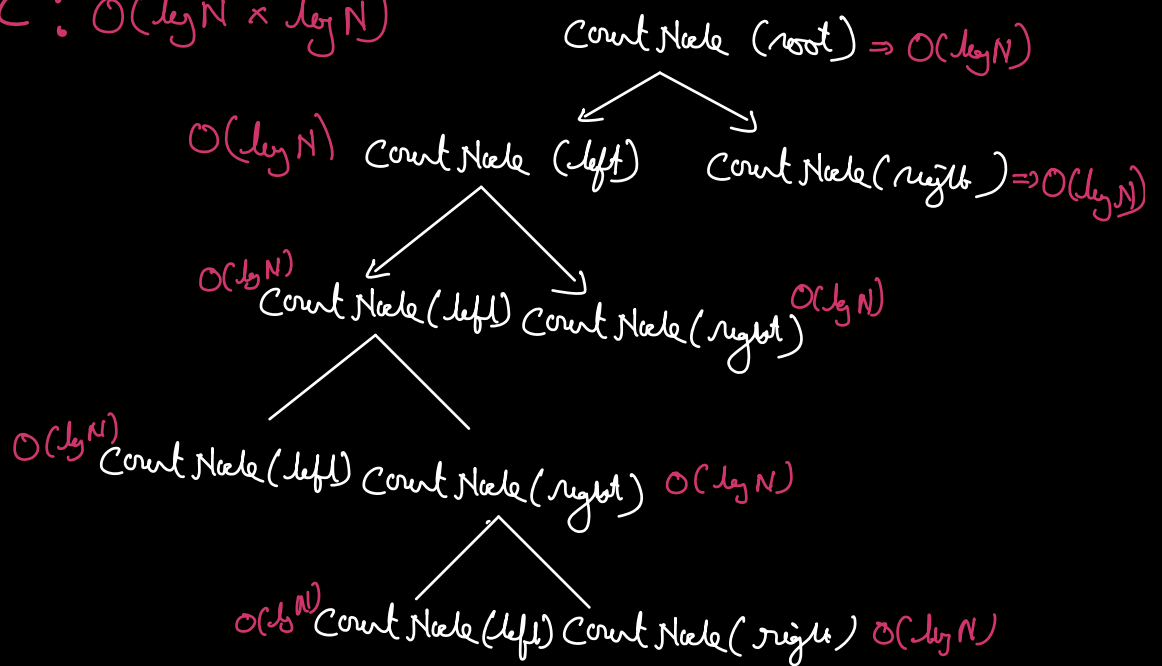 C : O(log N × log N)
Count Node (root) ⇒ O(log N)
O(log N) Count Node (left) Count Node (right) ⇒ O(log N)
O(log N) Count Node (left) Count Node (right) O(log N)
O(log N) Count Node (left) Count Node (right) O(log N)
O(log N) Count Node (left) Count Node (right) O(log N)